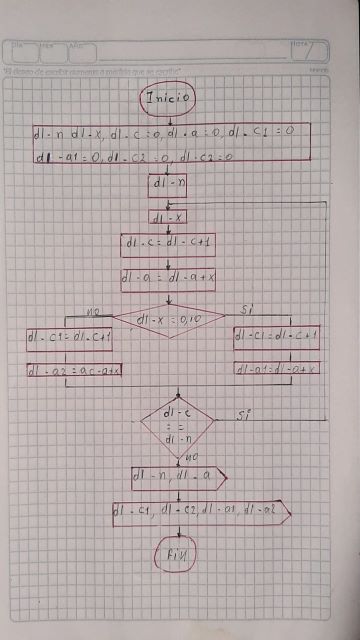 DIA MES AÑO NOTA
"El deseo de escribir aumenta a medida que se escribe"
Inicio
dl-n dl-x, dl-c=0, dl-a=0, dl-c1=0
dl-a1=0, dl-c2=0, dl-c2=0
dl-n
dl-x
dl-c=dl-c+1
dl-a=dl-a+x
no dl-x=0,10 si
dl-c1=dl-c+1 dl-c1=dl-c+1
dl-a2=ac-a+x dl-a1=dl-a+x
dl-c
== si
dl-n
no
dl-n, dl-a
dl-c1, dl-c2, dl-a1, dl-a2
fin